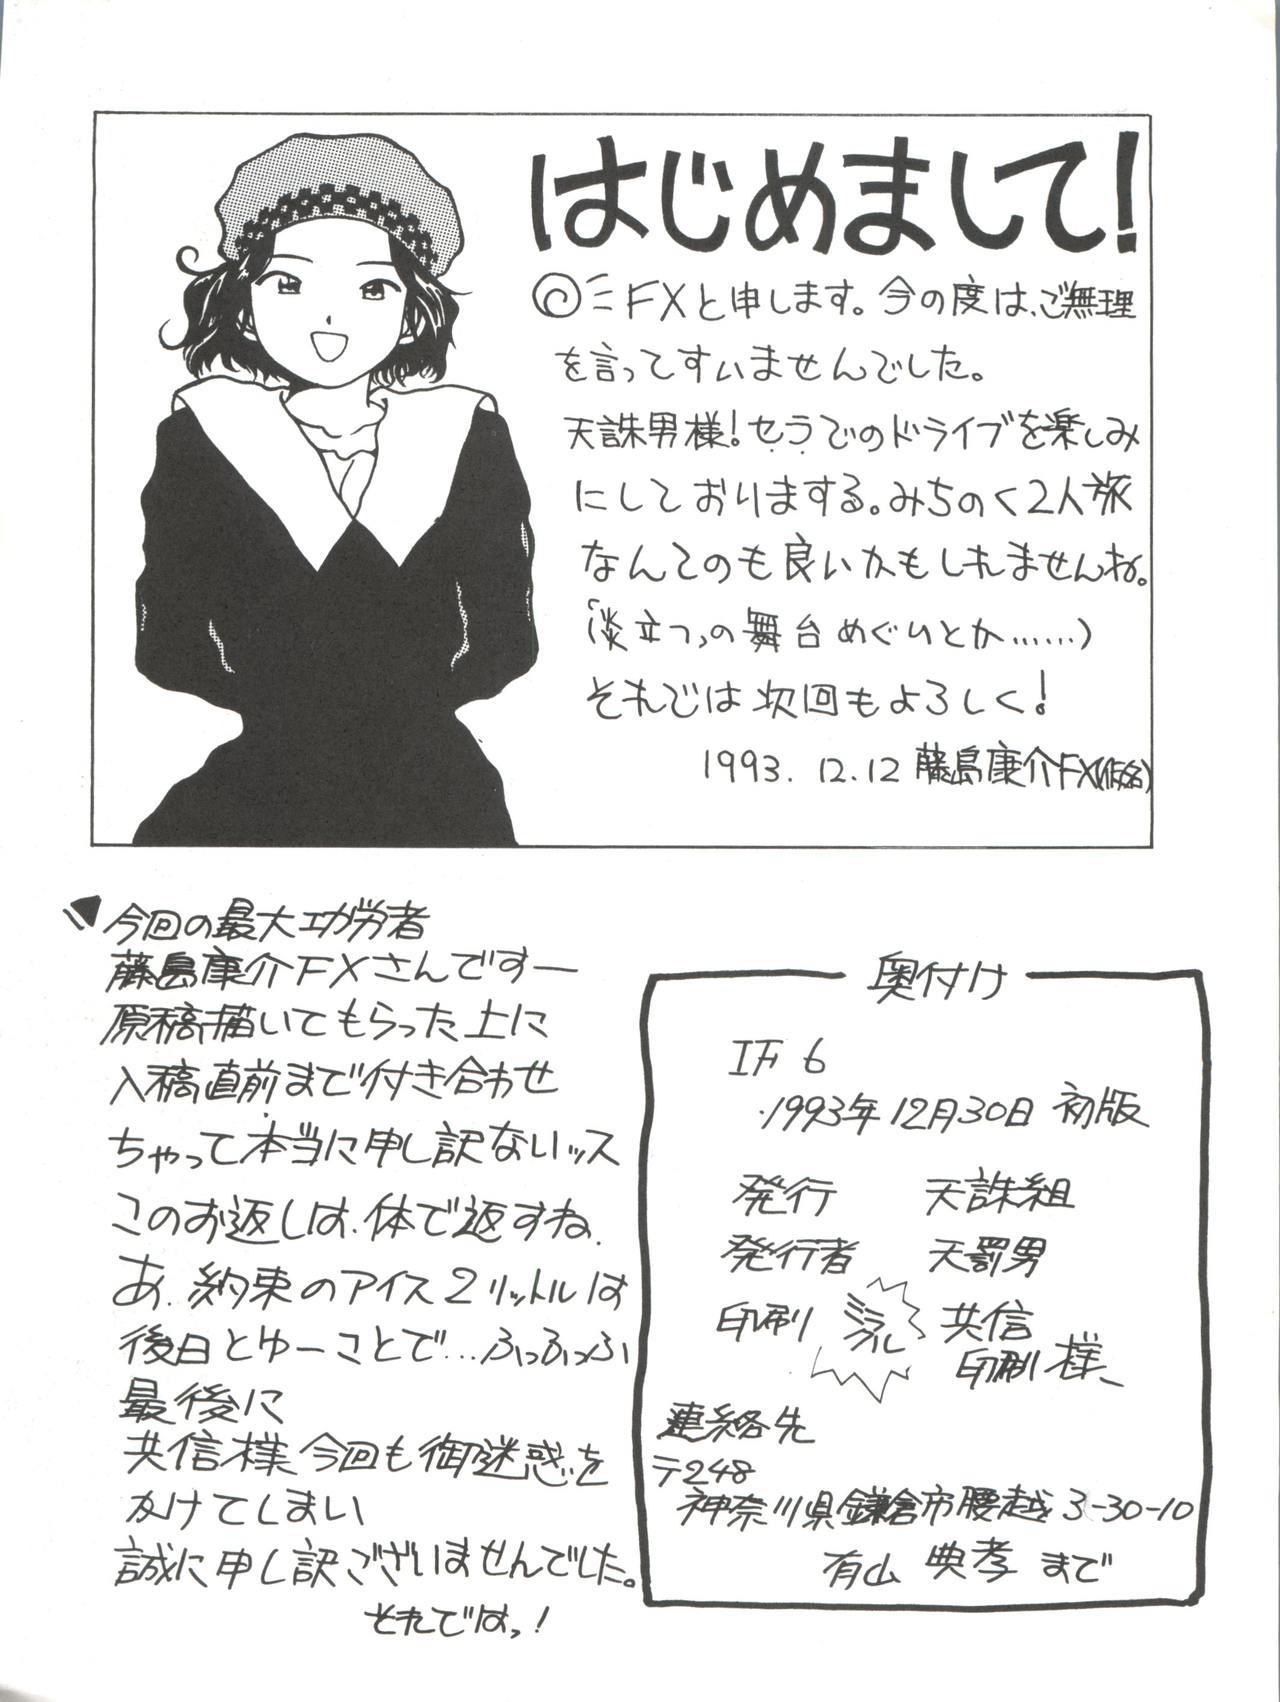 はじめまして!
FXと申します。今の度は、ご無理
を言ってすいませんでした。
天誅男様!セラでのドライブを楽しみ
にしておりまする。みちのく2人旅
なんてのも良いかもしれませんね。
(淡立つ、の舞台めぐりとか……)
それでは次回もよろしく!
1993.12.12 藤島康介FX(仮名)
今回の最大功労者
藤島康介FXさんですー
原稿描いてもらった上に
入稿直前まで付き合わせ
ちゃって本当に申し訳ないッス
このお返しは、体で返すね、
あ、約束のアイス2リットルは
後日とゆーことで…ふっふっふ
最後に
共信様今回も御迷惑を
かけてしまい
誠に申し訳ございませんでした。
それではっ!
奥付け
IF 6
1993年12月30日 初版
発行 天誅組
発行者 天罰男
印刷 ミラクル 共信
印刷様
連絡先
〒248
神奈川県鎌倉市腰越3-30-10
有山 典孝 まで